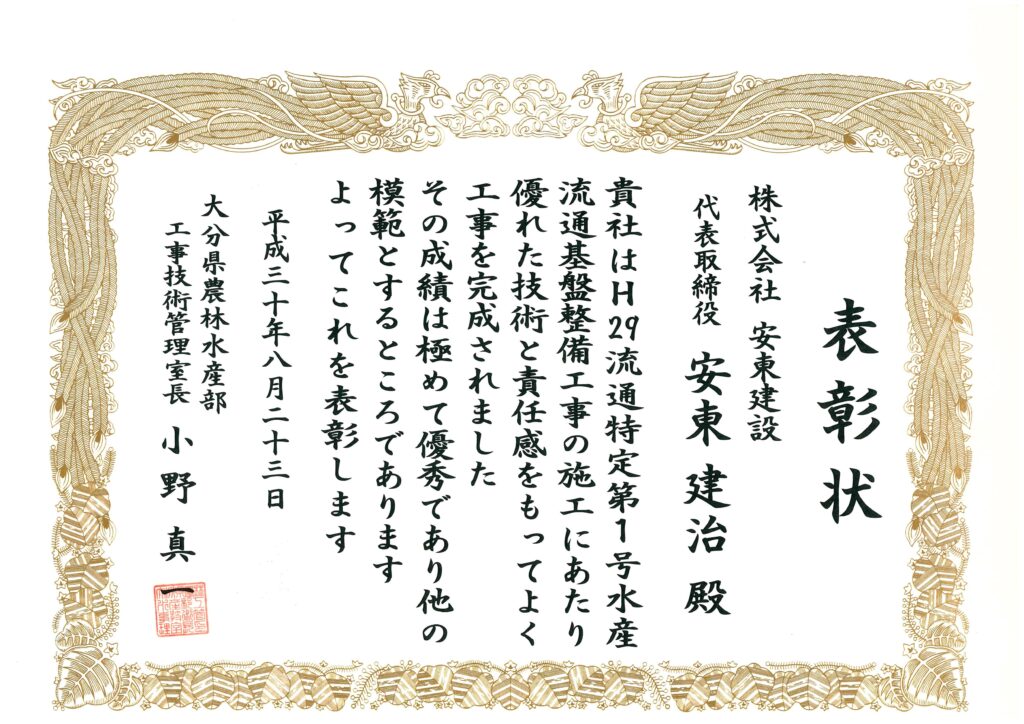 表彰状
株式会社 安東建設
代表取締役 安東 建治 殿
貴社はH29流通特定第1号水産
流通基盤整備工事の施工にあたり
優れた技術と責任感をもってよく
工事を完成されました
その成績は極めて優秀であり他の
模範とするところであります
よってこれを表彰します
平成三十年八月二十三日
大分県農林水産部
工事技術管理室長 小野 真一